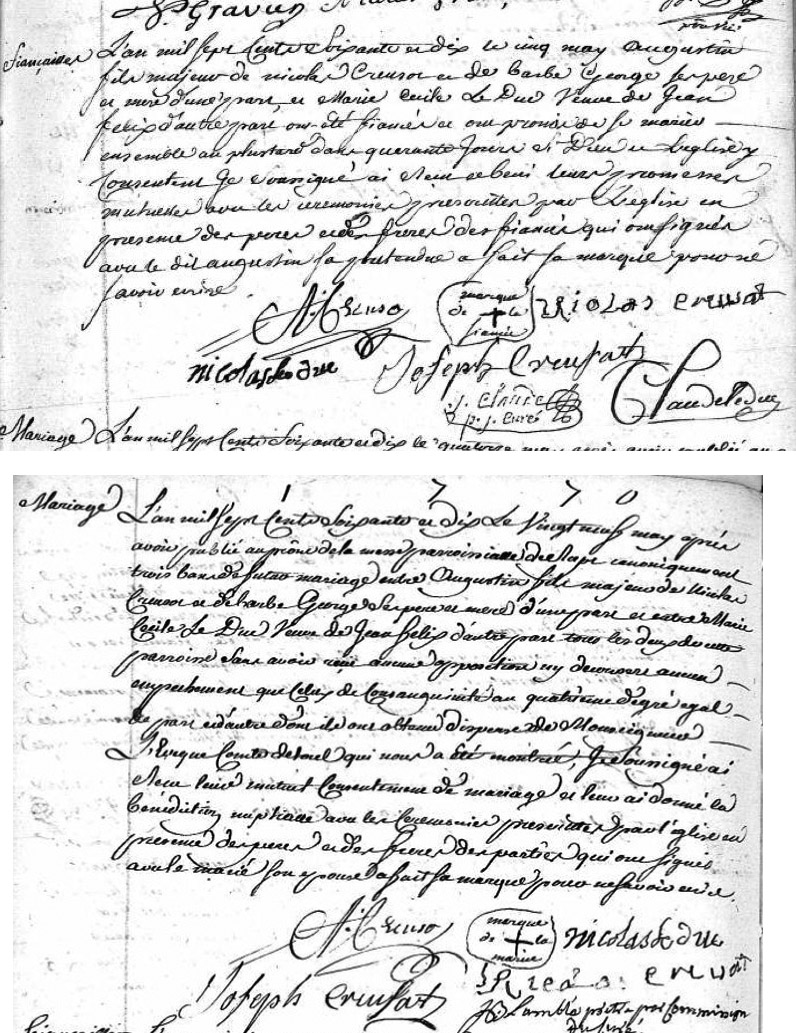 fiançailles L'an mil sept Cents Soixante et dix le cinq may Augustin
fils majeur de nicolas Creusot et de barbe George ses pere
et mere d'une part, et Marie Cecile Le Duc Veuve de Jean
felix d'autre part ont été fiancés et ont promis de se marier
ensemble au plustard dans quarante Jours si Dieu et L'eglise y
Consentent Je Soussigné ai Receu et beni leurs promesses
mutuelles avec les ceremonies prescrittes par L'eglise en
presence des peres et des freres des fiancés qui ont signés
avec le dit augustin sa pretendue a fait sa marque pour ne
savoir ecrire
A. Creuso marque de + la fiancée Nicolas creusat
nicolas le due Joseph Creusat
j. claude Claude le duc
p. j. curé
Mariage L'an mil sept Cents Soixante et dix le quatorze may après avoir publié au
1 7 7 0
Mariage L'an mil sept Cents Soixante et dix Le Vingt neuf may après
avoir publié au prône de la messe parroissialle de Rape canoniquement
trois bans de futur mariage entre Augustin fils majeur de Nicolas
Creusot et de barbe George Ses pere et mere d'une part et entre Marie
Cecile Le Duc Veuve de Jean felix d'autre part tous les deux de cette
parroisse Sans avoir reçu aucune opposition ny decouvert aucun
empechement que Celuy de Consanguinité au quatrieme degré egal
de part et d'autre dont ils ont obtenu dispense de Monseigneur
L'Eveque Comte de toul qui nous a été montrée, Je Soussigné ai
Receu leur mutuel Consentement de mariage et leur ai donné la
Benediction nuptialle avec les Ceremonies prescrittes par l'eglise en
presence des peres et des freres des parties qui ont signés
avec le marié son epouse a fait sa marque pour ne savoir ecrire
A. Creuso marque de + la mariée nicolas le due
Joseph Creusat creusat
Lamblé prêtre par Commission